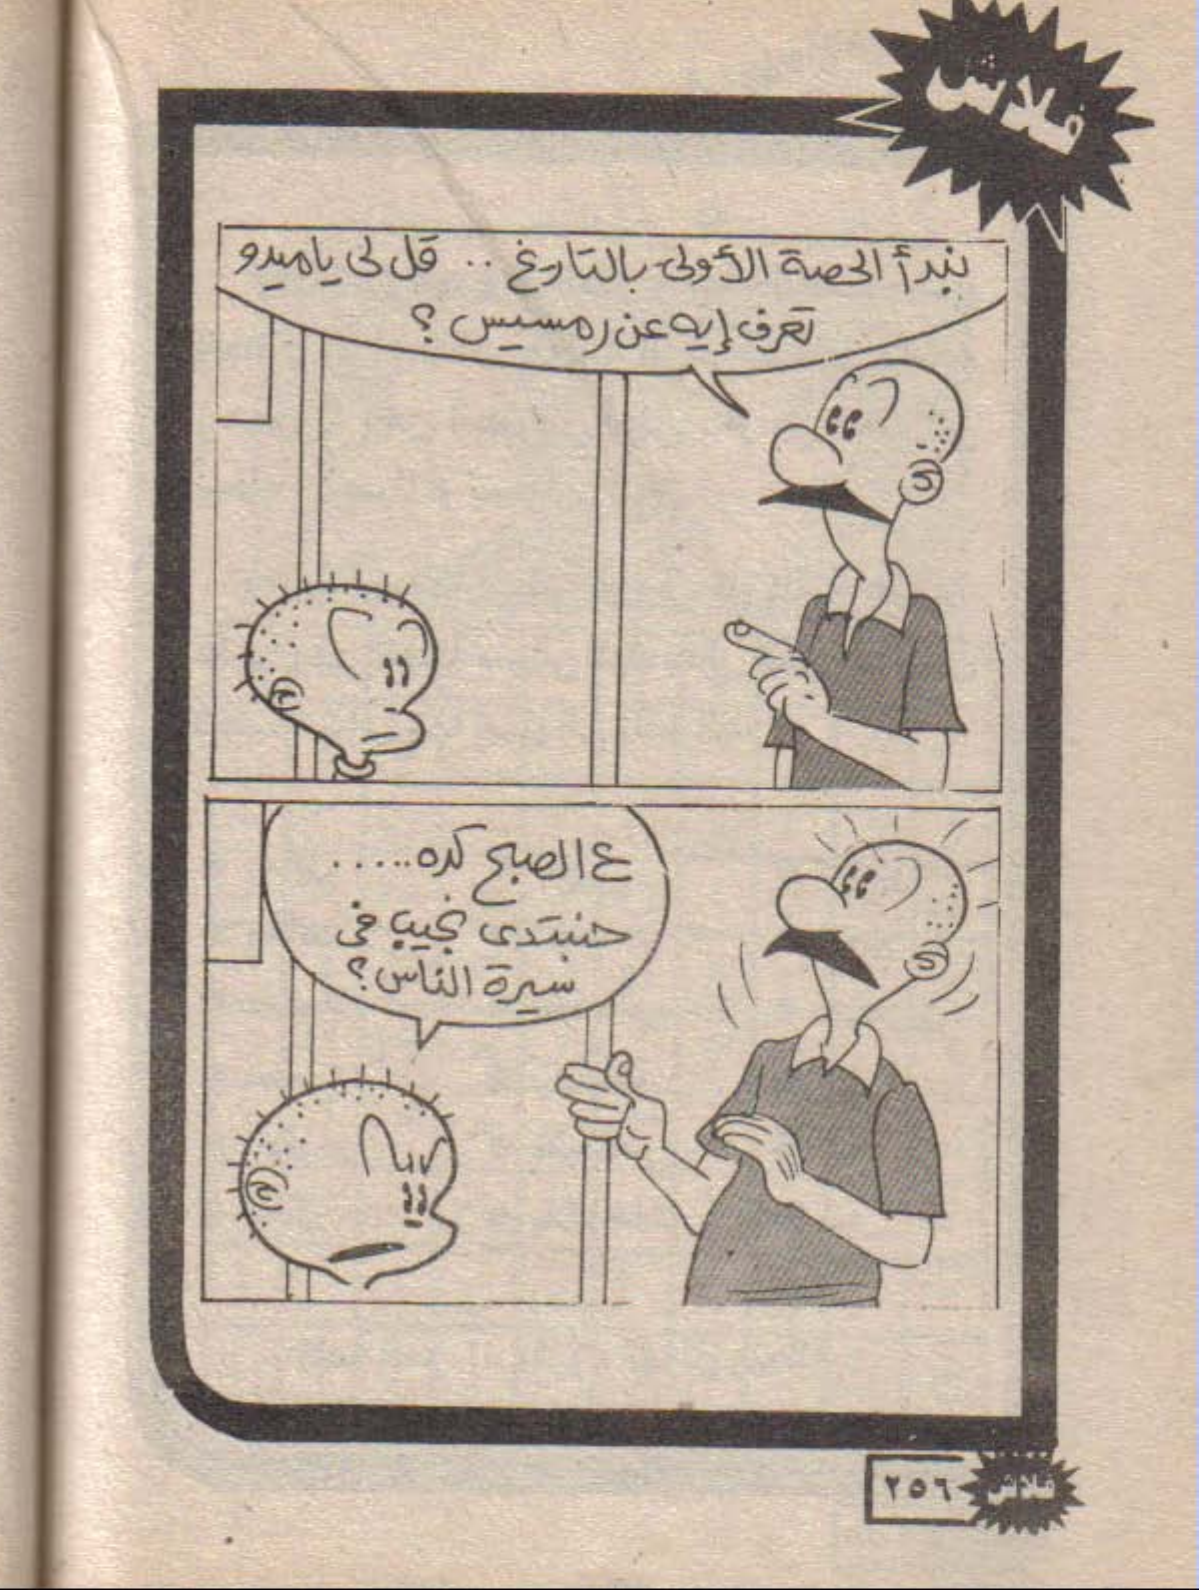 فلاش
نبدأ الحصة الأولى بالتاريخ .. قل لى ياميدو
تعرف إيه عن رمسيس ؟
ع الصبح كده.....
حنبتدى نجيب فى
سيرة الناس؟
فلاش
٢٥٦